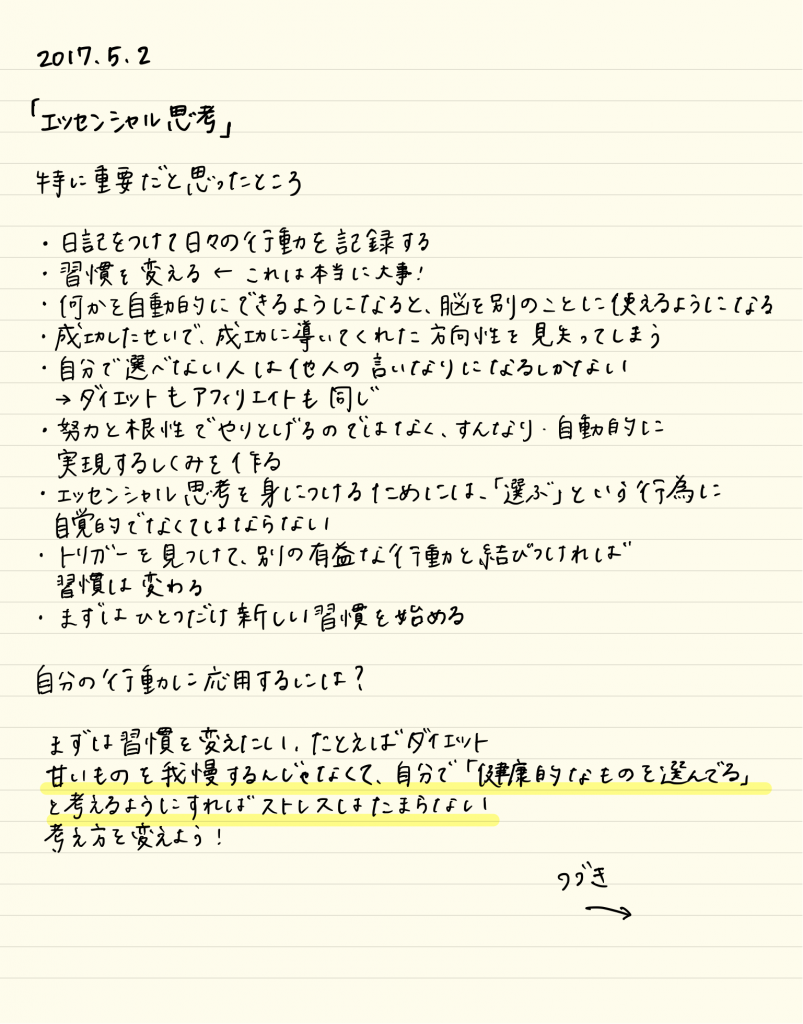 2017.5.2
「エッセンシャル思考」
特に重要だと思ったところ
・日記をつけて日々の行動を記録する
・習慣を変える ← これは本当に大事！
・何かを自動的にできるようになると、脳を別のことに使えるようになる
・成功したせいで、成功に導いてくれた方向性を見失ってしまう
・自分で選べない人は他人の言いなりになるしかない
→ ダイエットもアフィリエイトも同じ
・努力と根性でやりとげるのではなく、すんなり・自動的に
実現するしくみを作る
・エッセンシャル思考を身につけるためには、「選ぶ」という行為に
自覚的でなくてはならない
・トリガーを見つけて、別の有益な行動と結びつければ
習慣は変わる
・まずはひとつだけ新しい習慣を始める
自分の行動に応用するには？
まずは習慣を変えたい。たとえばダイエット
甘いものを我慢するんじゃなくて、自分で「健康的なものを選んでる」
と考えるようにすればストレスはたまらない
考え方を変えよう！
つづき
→